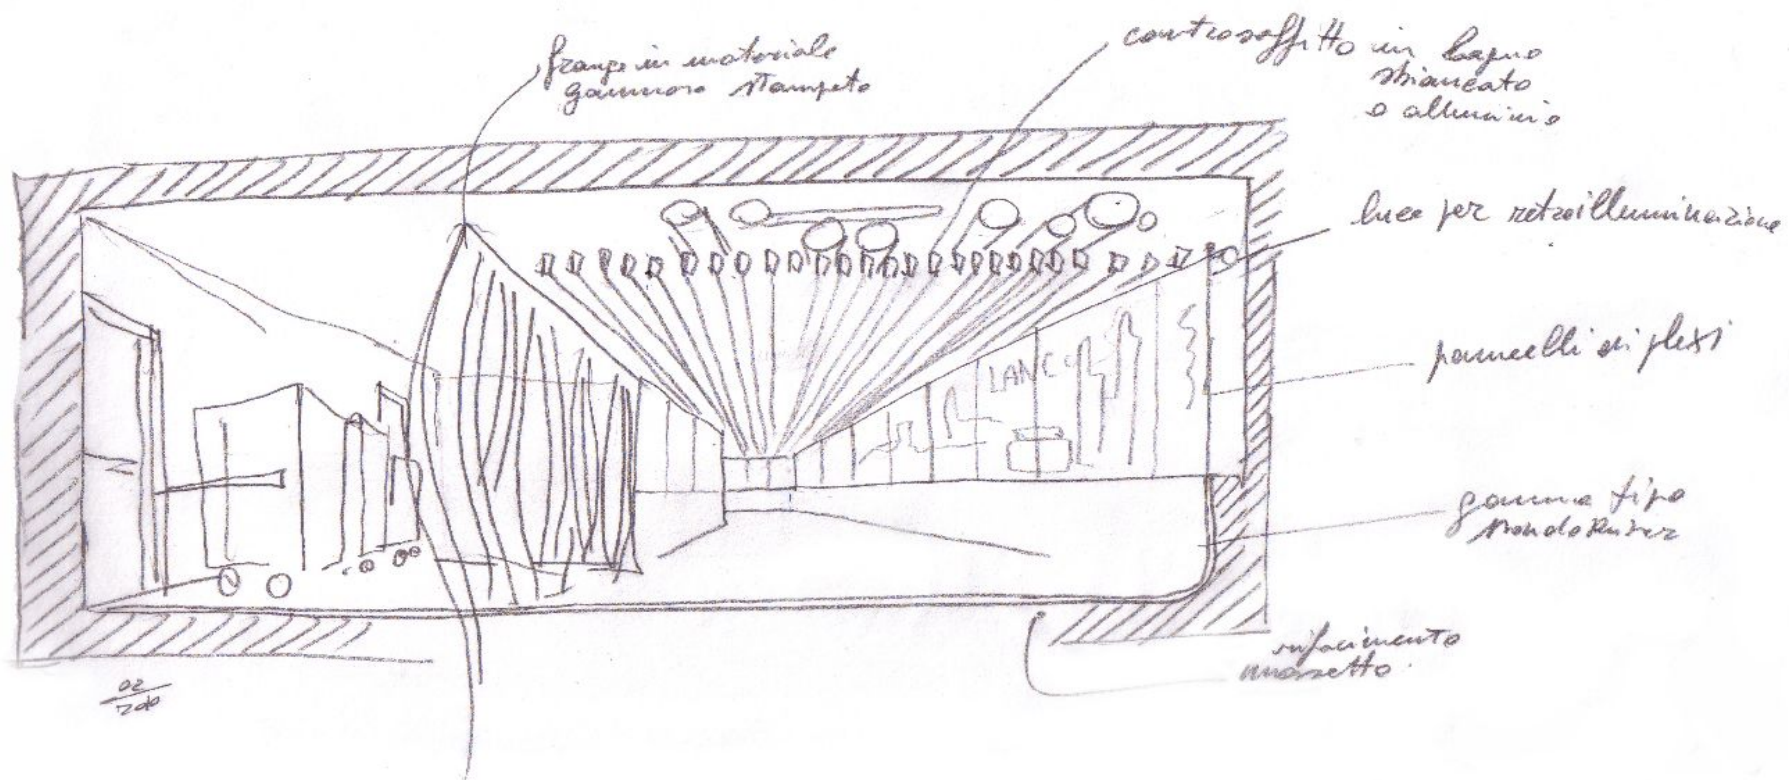 frange in materiale
gommoso stampato
controsoffitto in legno
sbiancato
o alluminio
luce per retroilluminazione
pannelli di plexi
LANC
gomma tipo
rifacimento
massetto
02